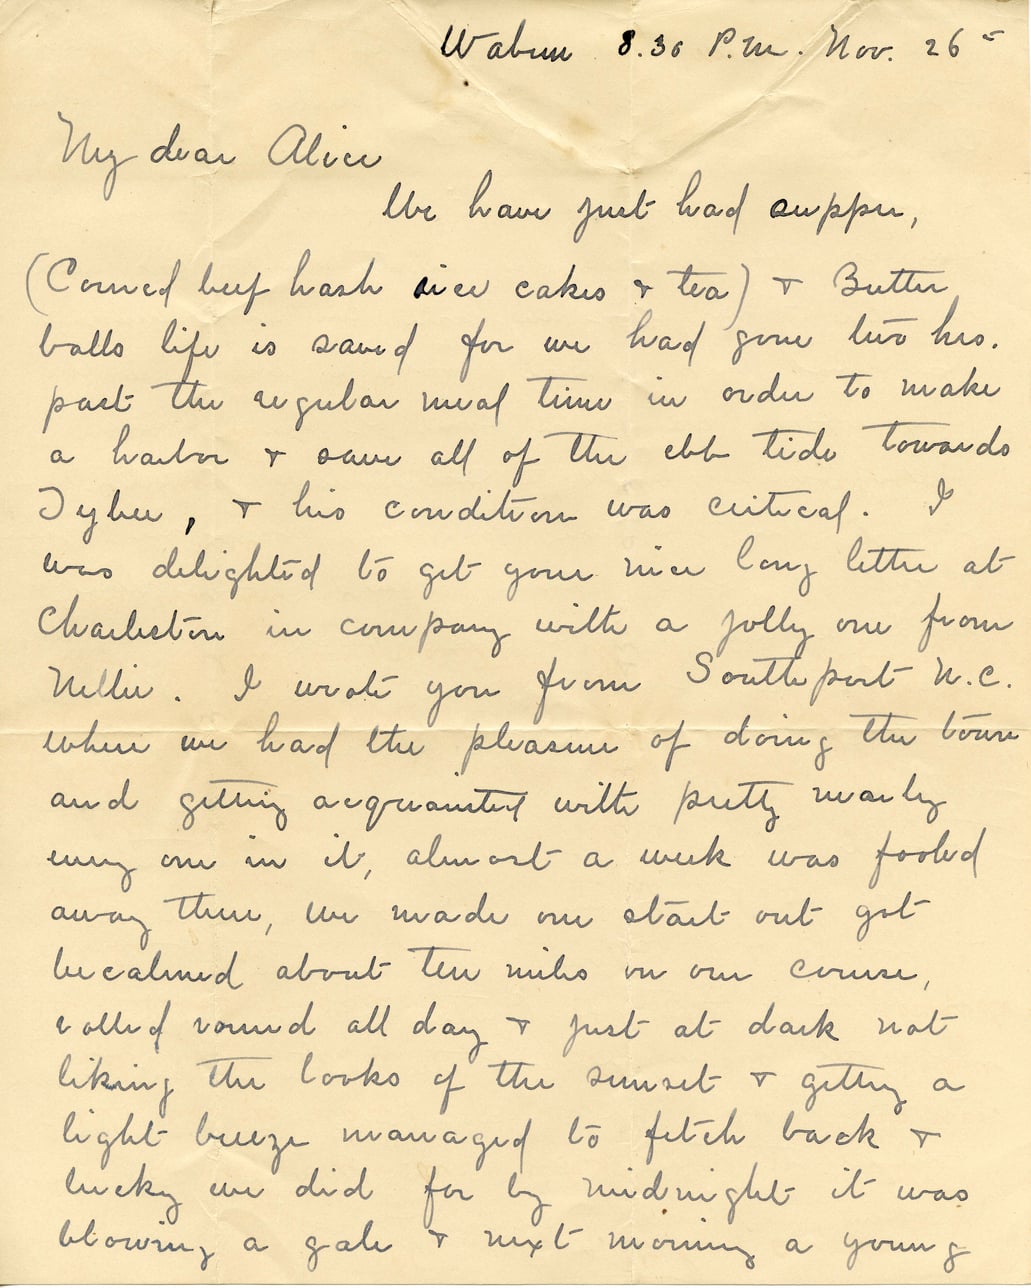 Wabun 8.30 P.M. Nov. 26 =
My dear Alice
We have just had supper,
(Corned beef hash rice cakes & tea) & Butter
balls life is saved for we had gone two hrs.
past the regular meal time in order to make
a harbor & save all of the ebb tide towards
Tybee, & his condition was critical. I
was delighted to get your nice long letter at
Charleston in company with a jolly one from
Nellie. I wrote you from Southport N.C.
where we had the pleasure of doing the town
and getting acquainted with pretty nearly
every one in it, almost a week was fooled
away there, we made one start out got
becalmed about ten miles on our course,
rolled round all day & just at dark not
liking the looks of the sunset & getting a
light breeze managed to fetch back &
lucky we did for by midnight it was
blowing a gale & next morning a young